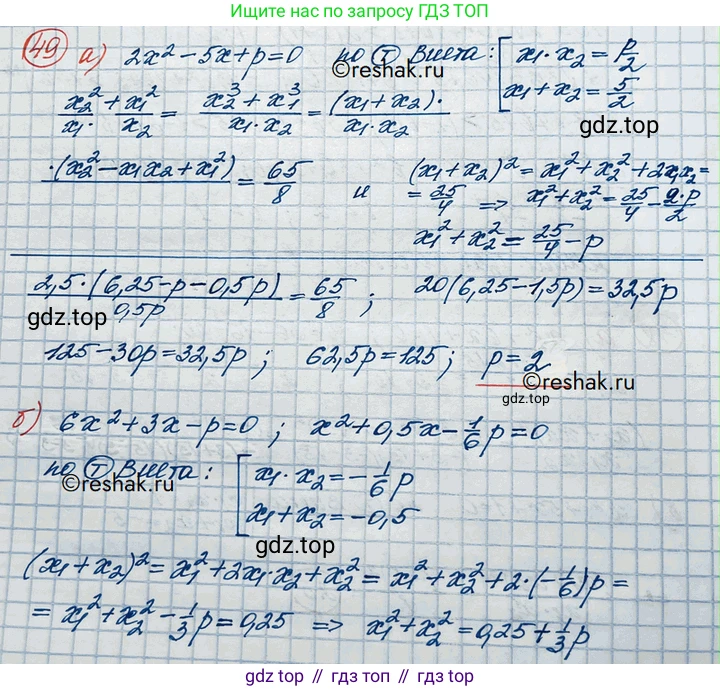 Ищите нас по запросу ГДЗ ТОП
49 а) 2x² - 5x + p = 0 по Т Виета: [ x₁ · x₂ = p/2
©reshak.ru
x₁ + x₂ = 5/2
gdz.top
x₂²/x₁ + x₁²/x₂ = (x₂³ + x₁³)/(x₁ · x₂) = (x₁ + x₂) · / (x₁ · x₂)
· (x₂² - x₁x₂ + x₁²) = 65/8 и (x₁ + x₂)² = x₁² + x₂² + 2x₁x₂ =
= 25/4 => x₁² + x₂² = 25/4 - 2·p/2
x₁² + x₂² = 25/4 - p
2,5 · (6,25 - p - 0,5p) / 0,5p = 65/8 ; 20(6,25 - 1,5p) = 32,5p
gdz.top
125 - 30p = 32,5p ; 62,5p = 125 ; p = 2
©reshak.ru
б) 6x² + 3x - p = 0 ; x² + 0,5x - 1/6 p = 0
по Т Виета: [ x₁ · x₂ = -1/6 p
©reshak.ru
x₁ + x₂ = -0,5
gdz.top
(x₁ + x₂)² = x₁² + 2x₁ · x₂ + x₂² = x₁² + x₂² + 2 · (-1/6)p =
= x₁² + x₂² - 1/3 p = 0,25 => x₁² + x₂² = 0,25 + 1/3 p
gdz.top // гдз.топ // gdz.top // гдз.топ